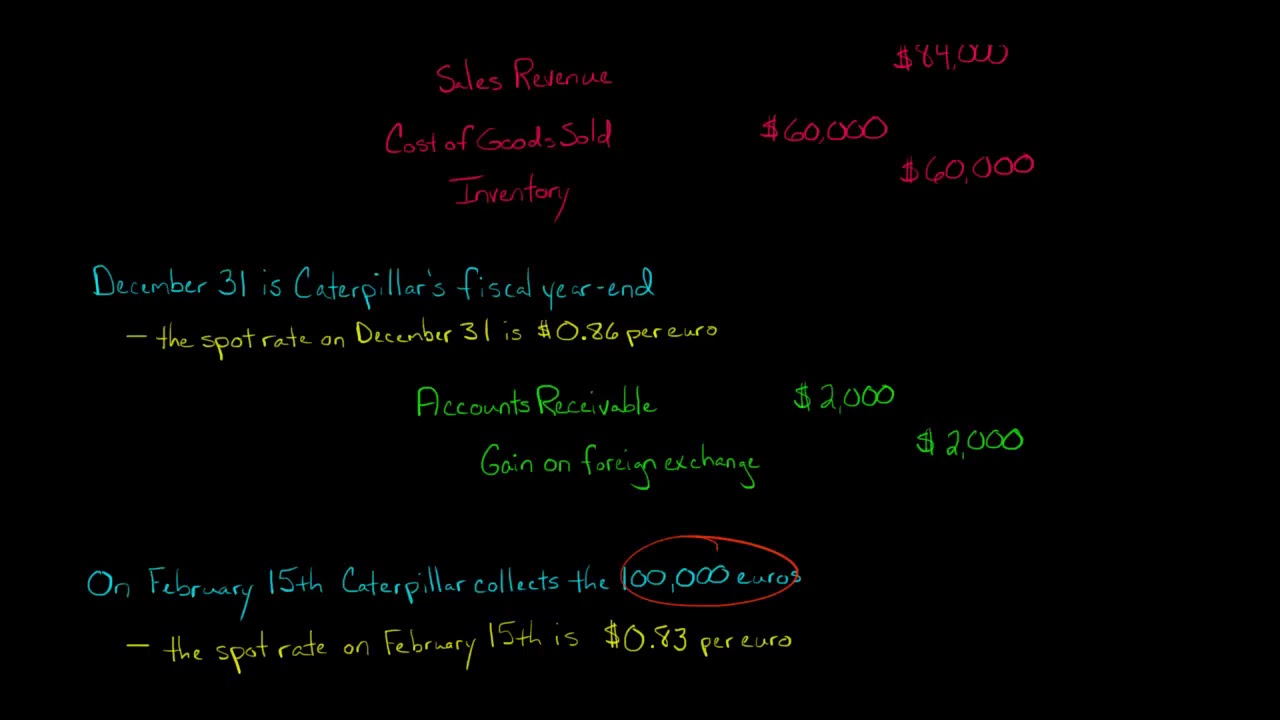 $84,000
Sales Revenue
Cost of Goods Sold $60,000
Inventory $60,000
December 31 is Caterpillar's fiscal year-end
— the spot rate on December 31 is $0.86 per euro
Accounts Receivable $2,000
Gain on foreign exchange $2,000
On February 15th Caterpillar collects the 100,000 euros
— the spot rate on February 15th is $0.83 per euro